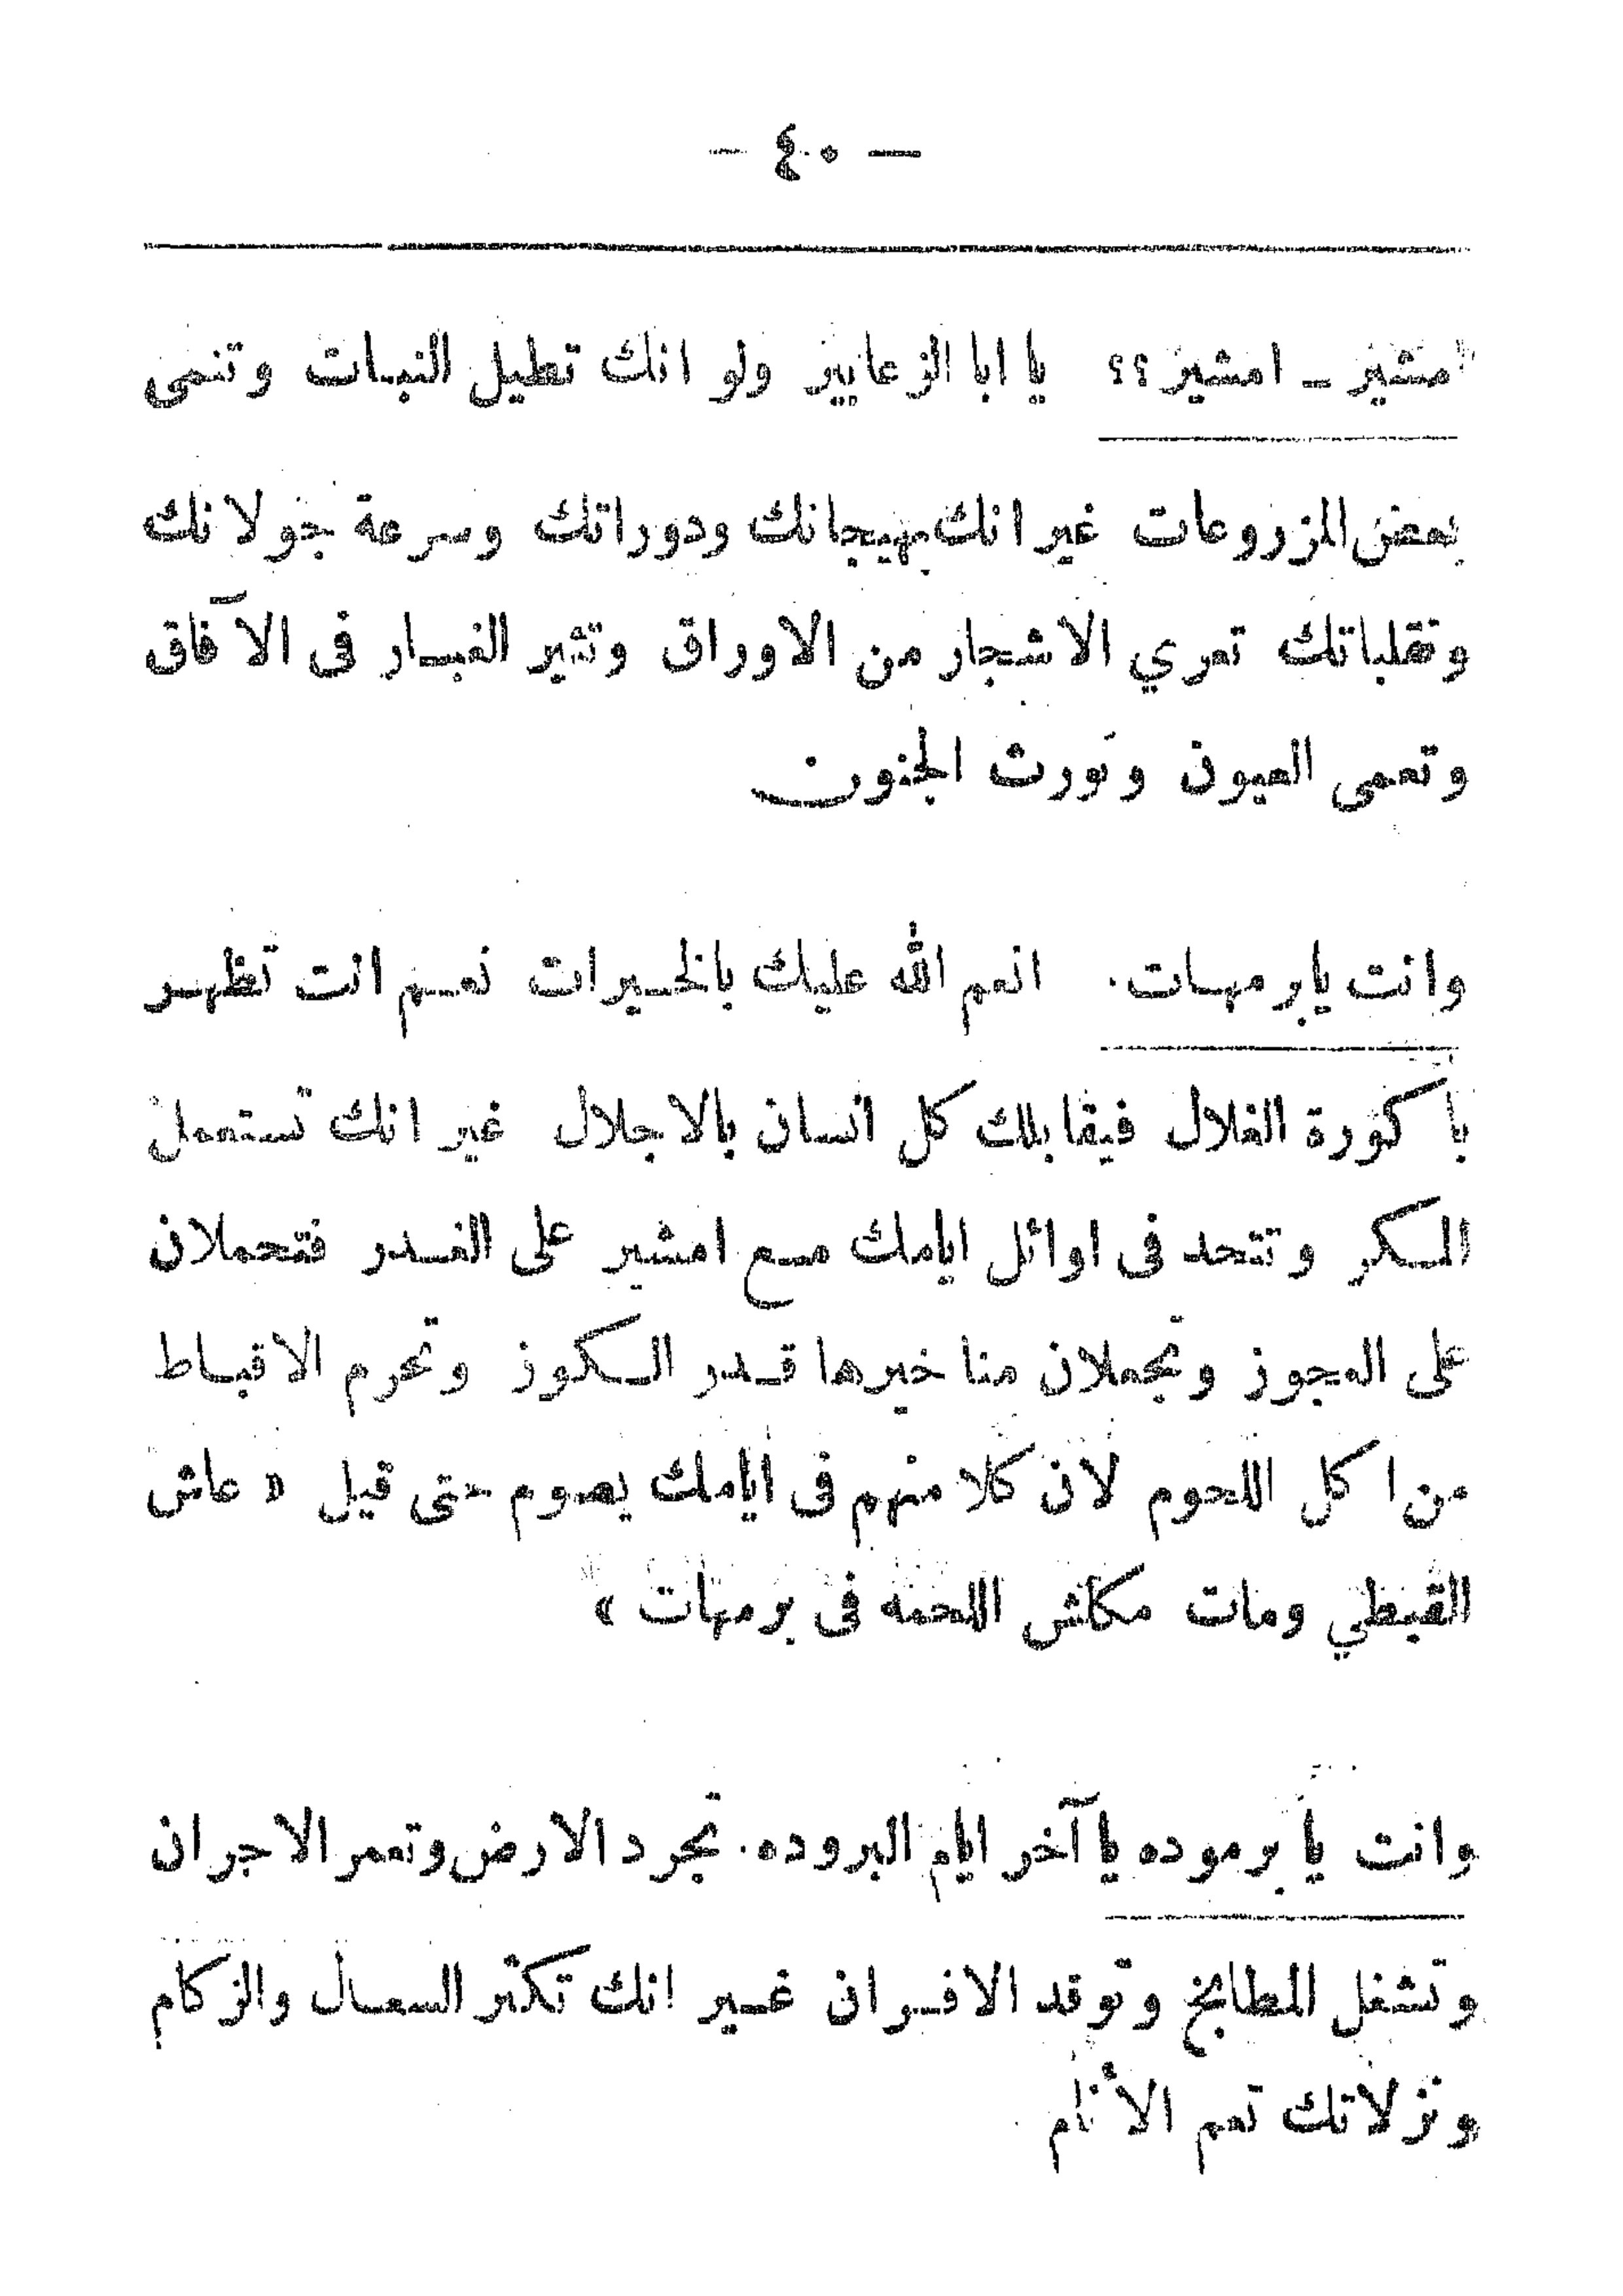 — ٤٠ —
امشير — امشير ؟؟ يا ابا الزعابير ولو انك تطيل النبات وتنمى
بعض المزروعات غير انك بهيجانك ودوراتك وسرعة جولانك
وتقلباتك تعري الاشجار من الاوراق وتثير الغبار فى الآفاق
وتعمى العيون وتورث الجنون
وانت يابرمهات . انعم الله عليك بالخيرات نعم انت تظهر
باكورة الغلال فيقابلك كل انسان بالاجلال غير انك تستعمل
المكر وتتحد فى اوائل ايامك مع امشير على الغدر فتحملان
على العجوز وتجعلان مناخيرها قدر الكوز وتحرم الاقباط
من اكل اللحوم لان كلا منهم فى ايامك يصوم حتى قيل « عاش
القبطي ومات مكلش اللحمه فى برمهات »
وانت يا برموده يا آخر ايام البروده . تجرد الارض وتعمر الاجران
وتشغل المطابخ وتوقد الافران غير انك تكثر السعال والزكام
ونزلاتك تعم الأنام